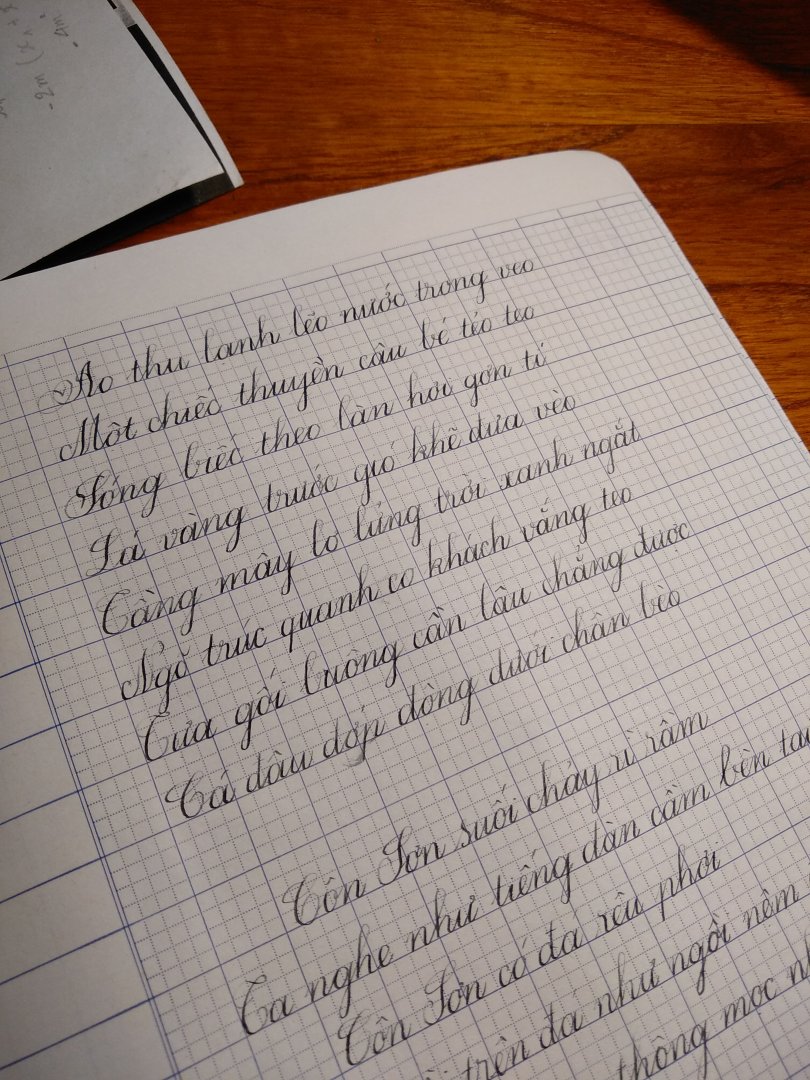 Ao thu lạnh lẽo nước trong veo
Một chiếc thuyền câu bé tẻo teo
Sóng biếc theo làn hơi gợn tí
Lá vàng trước gió khẽ đưa vèo
Tầng mây lơ lửng trời xanh ngắt
Ngõ trúc quanh co khách vắng teo
Tựa gối buông cần lâu chẳng được
Cá đâu đớp động dưới chân bèo
Côn Sơn suối chảy rì rầm
Ta nghe như tiếng đàn cầm bên
Côn Sơn có đá rêu phơi
trên đá như ngồi nệm
thông mọc